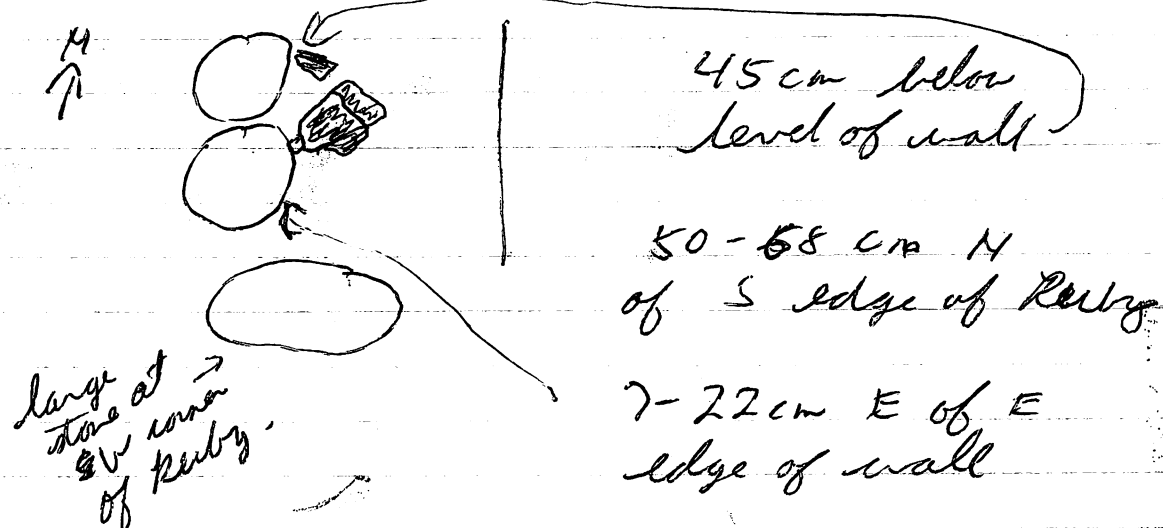 N
45 cm below
level of wall
50-68 cm N
of S edge of Kerby
7-22 cm E of E
edge of wall
large
stone at
SW corner
of Kerby.